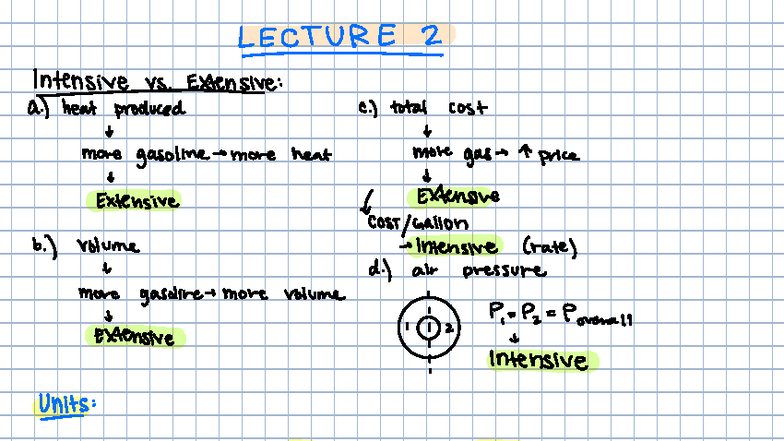 LECTURE 2
Intensive vs. Extensive:
a.) heat produced
↓
more gasoline → more heat
↓
Extensive
b.) volume
↓
more gasoline → more volume
↓
Extensive
c.) total cost
↓
more gas → ↑ price
↓
Extensive
Cost/Gallon
→ Intensive (rate)
d.) air pressure
1 2
P₁ = P₂ = Poverall
↓
Intensive
Units: